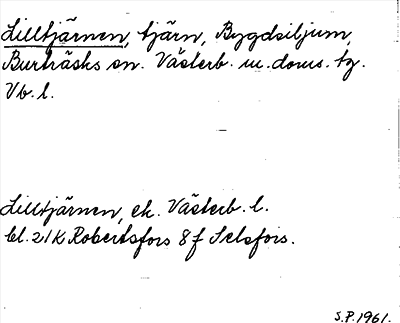 Lilltjärnen, tjärn, Bygdsiljum,
Burträsks sn. Västerb. m. doms. tg.
Vb. l.
Lilltjärnen, ek. Västerb. l.
bl. 21K Robertsfors 8f Selsfors.
S.P. 1961.